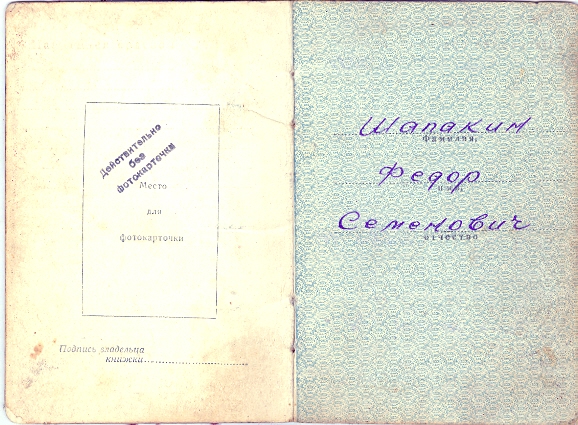 Действительно
без
фотокарточки
Место
для
фотокарточки
Подпись владельца
книжки
Шапакин
Фамилия,
Федор
имя,
Семенович
отчество